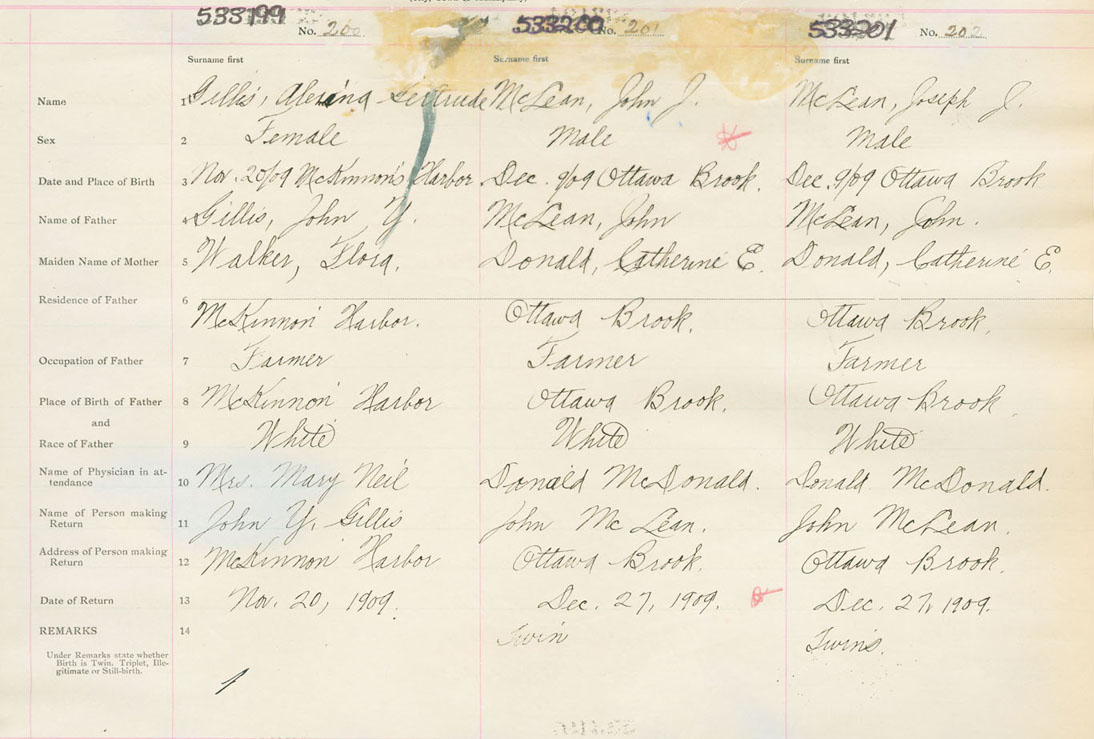 533199 533200 533201
No. 200 No. 201 No. 202
Surname first Surname first Surname first
Name 1 Gillis, Gertrude McLean, John J. McLean, Joseph J.
Sex 2 Female Male Male
Date and Place of Birth 3 Nov. 20/09 McKinnon's Harbor Dec. 9/09 Ottawa Brook. Dec. 9/09 Ottawa Brook
Name of Father 4 Gillis, John Y. McLean, John McLean, John.
Maiden Name of Mother 5 Walker, Flora. Donald, Catherine E. Donald, Catherine E.
Residence of Father 6
McKinnon Harbor. Ottawa Brook. Ottawa Brook.
Occupation of Father 7 Farmer Farmer Farmer
Place of Birth of Father 8 McKinnon Harbor Ottawa Brook. Ottawa Brook.
and
Race of Father 9 White White White
Name of Physician in at-
tendance 10 Mrs. Mary Neil Donald McDonald. Donald McDonald.
Name of Person making
Return 11 John Y. Gillis John McLean. John McLean.
Address of Person making
Return 12 McKinnon Harbor Ottawa Brook. Ottawa Brook.
Date of Return 13 Nov. 20, 1909. Dec. 27, 1909. Dec. 27, 1909.
REMARKS 14 Twin Twins.
Under Remarks state whether
Birth is Twin. Triplet, Ille-
gitimate or Still-birth.